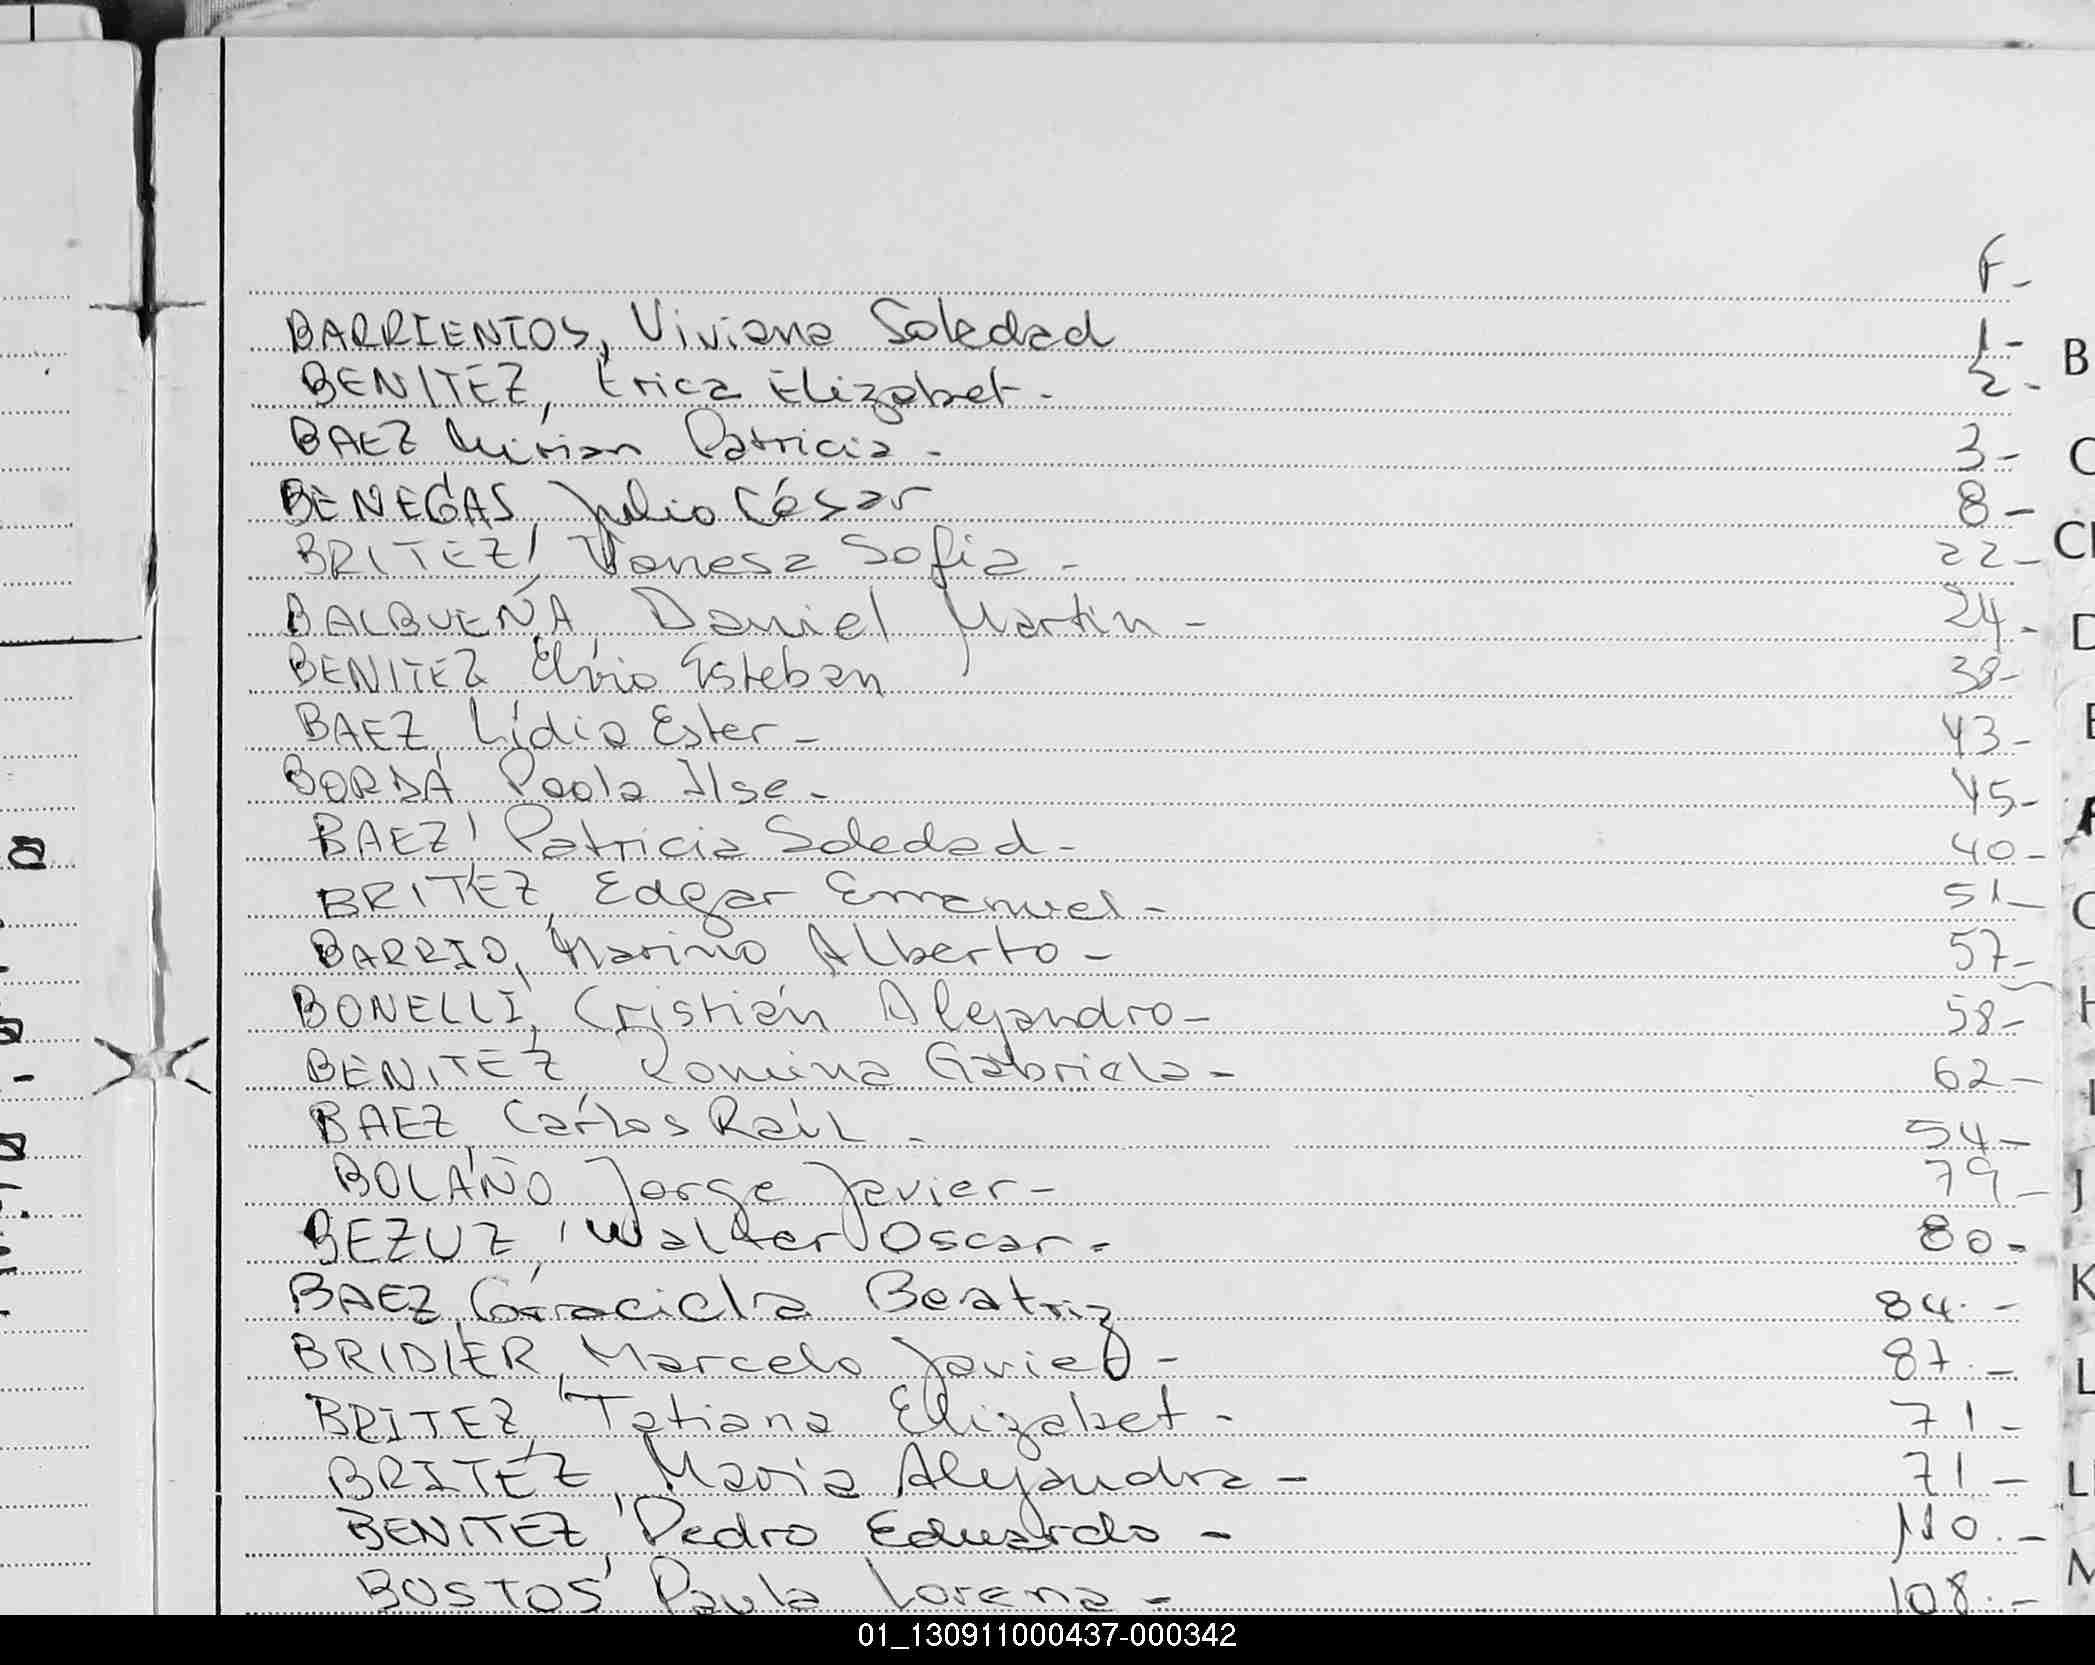 F-
BARRIENTOS, Viviana Soledad 1-
BENITEZ, Erica Elizabet- 2-
BAEZ Mirian Patricia- 3-
BENEGAS, Julio César 8-
BRITEZ, Vanesa Sofia- 22-
BALBUENA, Daniel Martín- 24-
BENITEZ Elvio Esteban 38-
BAEZ, Lidia Ester- 43-
BORDA Paola Ilse- 45-
BAEZ, Patricia Soledad- 40-
BRITEZ, Edgar Emanuel- 51-
BARRIO, Marino Alberto- 57-
BONELLI, Cristián Alejandro- 58-
BENITEZ Romina Gabriela- 62-
BAEZ, Carlos Raúl- 54-
BOLAÑO Jorge Javier- 79-
BEZUZ, Walter Oscar- 80-
BAEZ, Graciela Beatriz 84.-
BRIDIER, Marcelo Javier- 87.-
BRITEZ, Tatiana Elizabet- 71-
BRITEZ, Maria Alejandra- 71-
BENITEZ, Pedro Eduardo- 110.-
BUSTOS Paula Lorena- 108.-
B
C
D
J
K
L
01_130911000437-000342